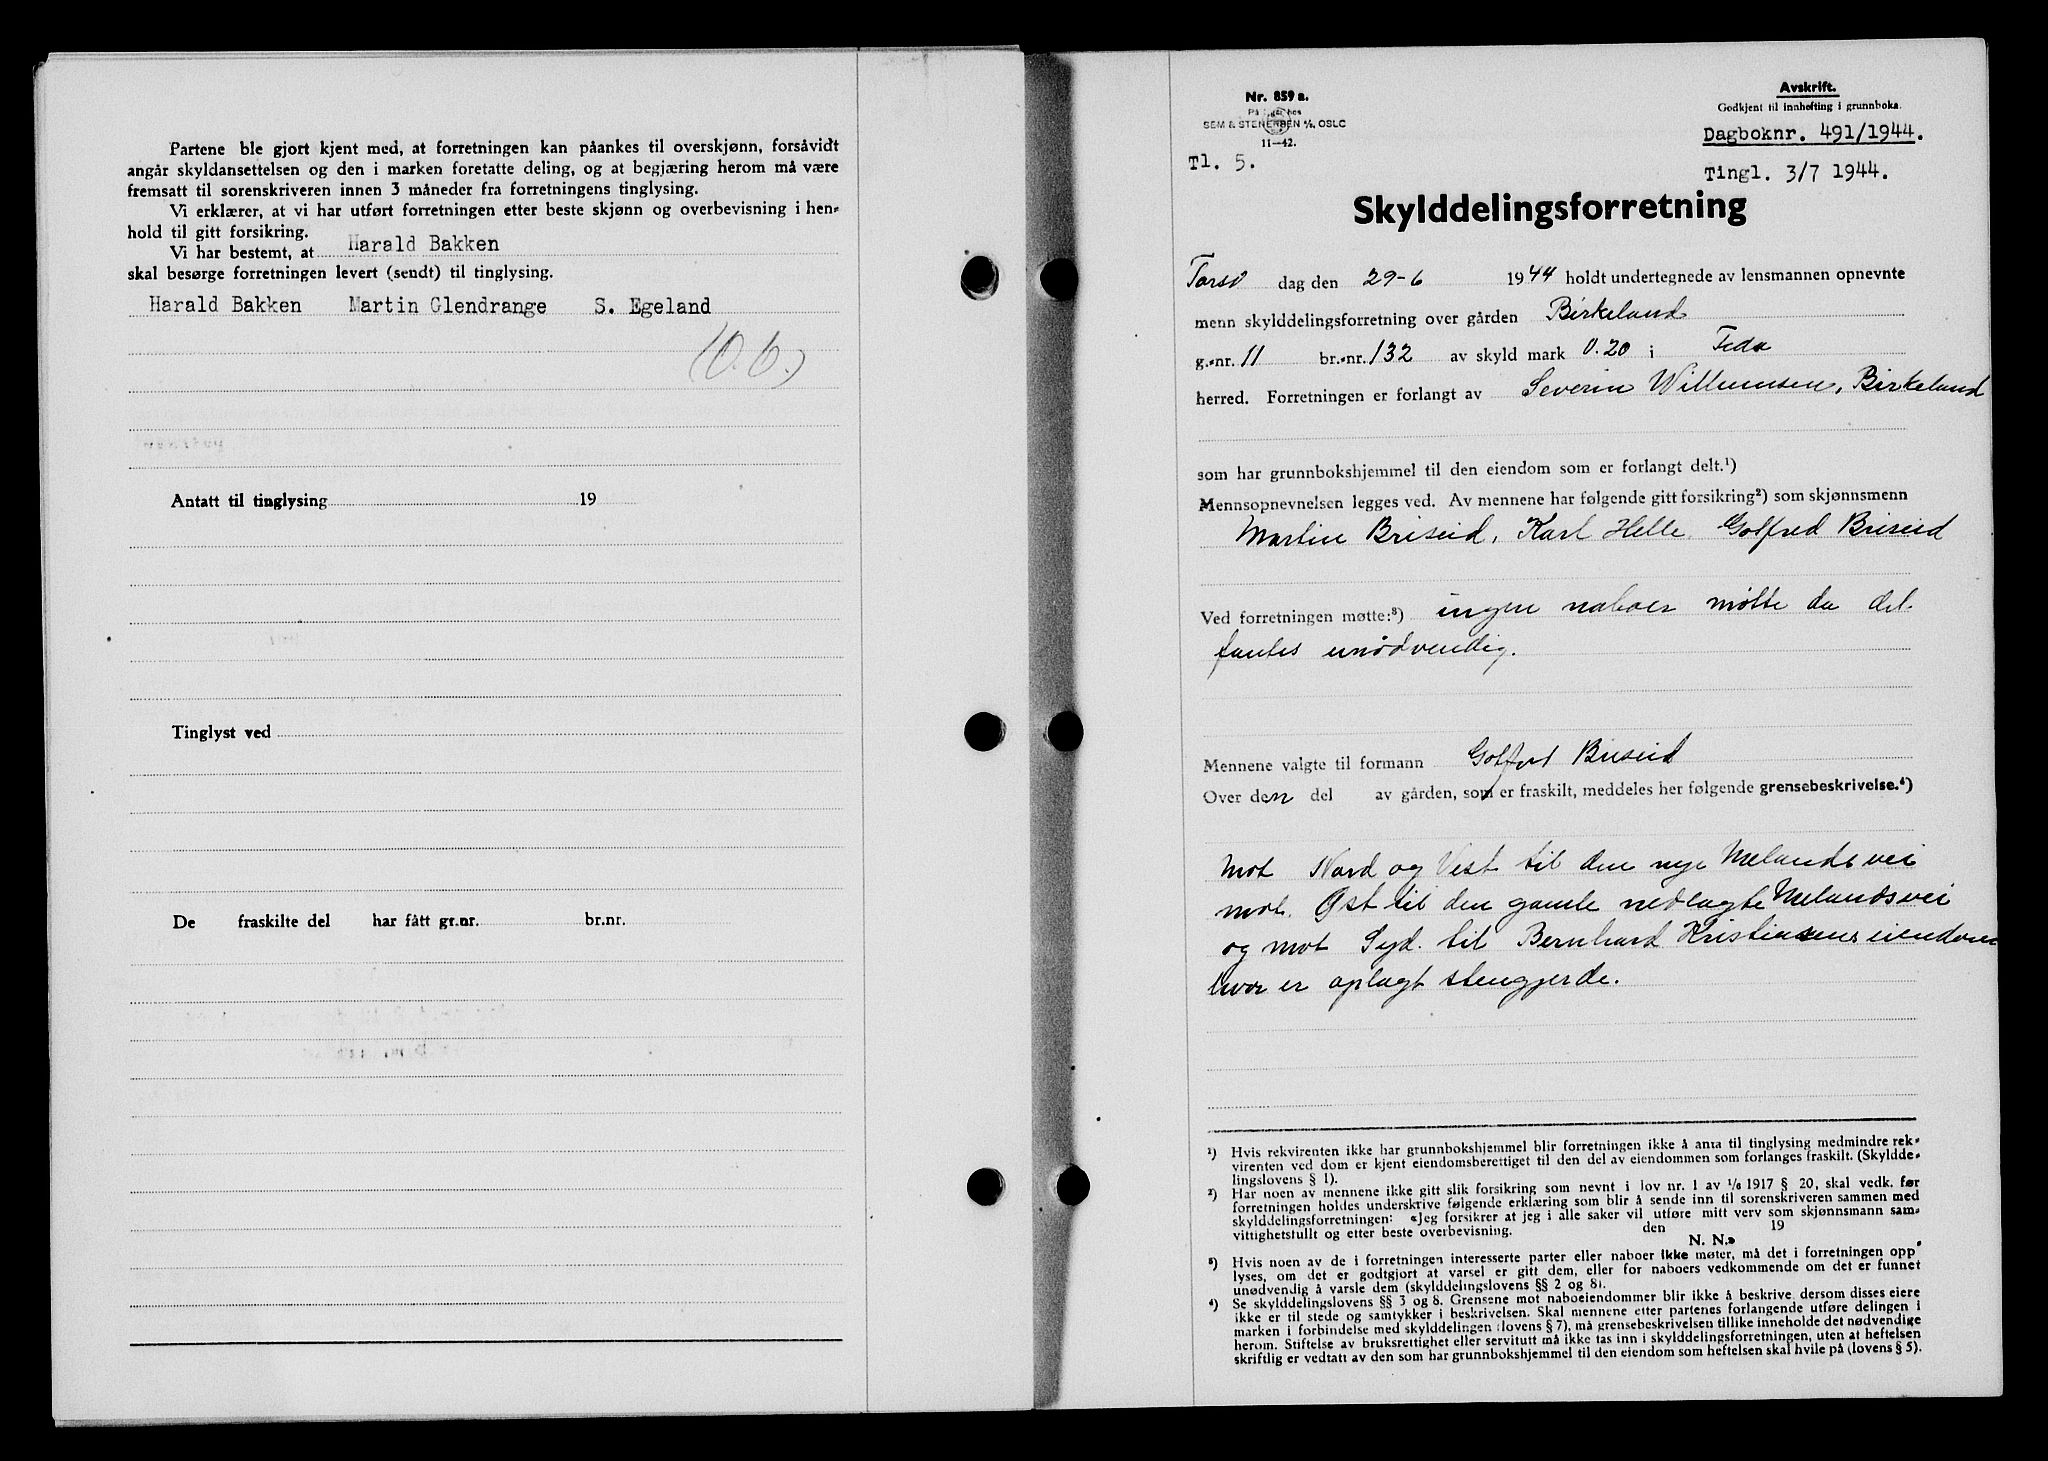 Partene ble gjort kjent med, at forretningen kan påankes til overskjønn, forsåvidt
angår skyldansettelsen og den i marken foretatte deling, og at begjæring herom må være
fremsatt til sorenskriveren innen 3 måneder fra forretningens tinglysing.
Vi erklærer, at vi har utført forretningen etter beste skjønn og overbevisning i hen-
hold til gitt forsikring.
Vi har bestemt, at Harald Bakken
skal besørge forretningen levert (sendt) til tinglysing.
Harald Bakken Martin Glendrange S. Egeland
(O.b.)
Antatt til tinglysing 19
Tinglyst ved
De fraskilte del har fått gr.nr. br.nr.
Nr. 859 a.
SEM & STENERSEN A/S, OSLO
11—42.
Tl. 5.
Avskrift.
Godkjent til innhefting i grunnboka.
Dagboknr. 491/1944.
Tingl. 3/7 1944.
Skylddelingsforretning
Tors dag den 29-6 1944 holdt undertegnede av lensmannen opnevnte
menn skylddelingsforretning over gården Birkeland
g.-nr. 11 br.-nr. 132 av skyld mark 0.20 i Feda
herred. Forretningen er forlangt av Severin Willumsen, Birkeland
som har grunnbokshjemmel til den eiendom som er forlangt delt.¹)
Mennsopnevnelsen legges ved. Av mennene har følgende gitt forsikring²) som skjønnsmenn
Martin Briseid, Karl Helle Gotfred Briseid
Ved forretningen møtte:³) ingen naboer møtte da det
fantes unødvendig.
Mennene valgte til formann Gotfred Briseid
Over den del av gården, som er fraskilt, meddeles her følgende grensebeskrivelse.⁴)
mot Nord og Vest til den nye Melandsvei
mot. Øst til den gamle nedlagte Melandsvei
og mot Syd. til Bernhard Kristiansens eiendom
hvor er oplagt stengjerde.
¹) Hvis rekvirenten ikke har grunnbokshjemmel blir forretningen ikke å anta til tinglysing medmindre rek-
virenten ved dom er kjent eiendomsberettiget til den del av eiendommen som forlanges fraskilt. (Skyldde-
lingslovens § 1).
²) Har noen av mennene ikke gitt slik forsikring som nevnt i lov nr. 1 av 1/6 1917 § 20, skal vedk. før
forretningen holdes underskrive følgende erklæring som blir å sende inn til sorenskriveren sammen med
skylddelingsforretningen: «Jeg forsikrer at jeg i alle saker vil utføre mitt verv som skjønnsmann sam-
vittighetsfullt og etter beste overbevisning. den 19
N. N.»
³) Hvis noen av de i forretningen interesserte parter eller naboer ikke møter, må det i forretningen opp-
lyses, om det er godtgjort at varsel er gitt dem, eller for naboers vedkommende om det er funnet
unødvendig å varsle dem (skylddelingslovens §§ 2 og 8).
⁴) Se skylddelingslovens §§ 3 og 8. Grensene mot naboeiendommer blir ikke å beskrive, dersom disses eiere
ikke er til stede og samtykker i beskrivelsen. Skal mennene etter partenes forlangende utføre delingen i
marken i forbindelse med skylddelingen (lovens § 7), må grensebeskrivelsen tillike inneholde det nødvendige
herom. Stiftelse av bruksrettighet eller servitutt må ikke tas inn i skylddelingsforretningen, uten at heftelsen
skriftlig er vedtatt av den som har grunnbokshjemmel til den eiendom som heftelsen skal hvile på (lovens § 5).